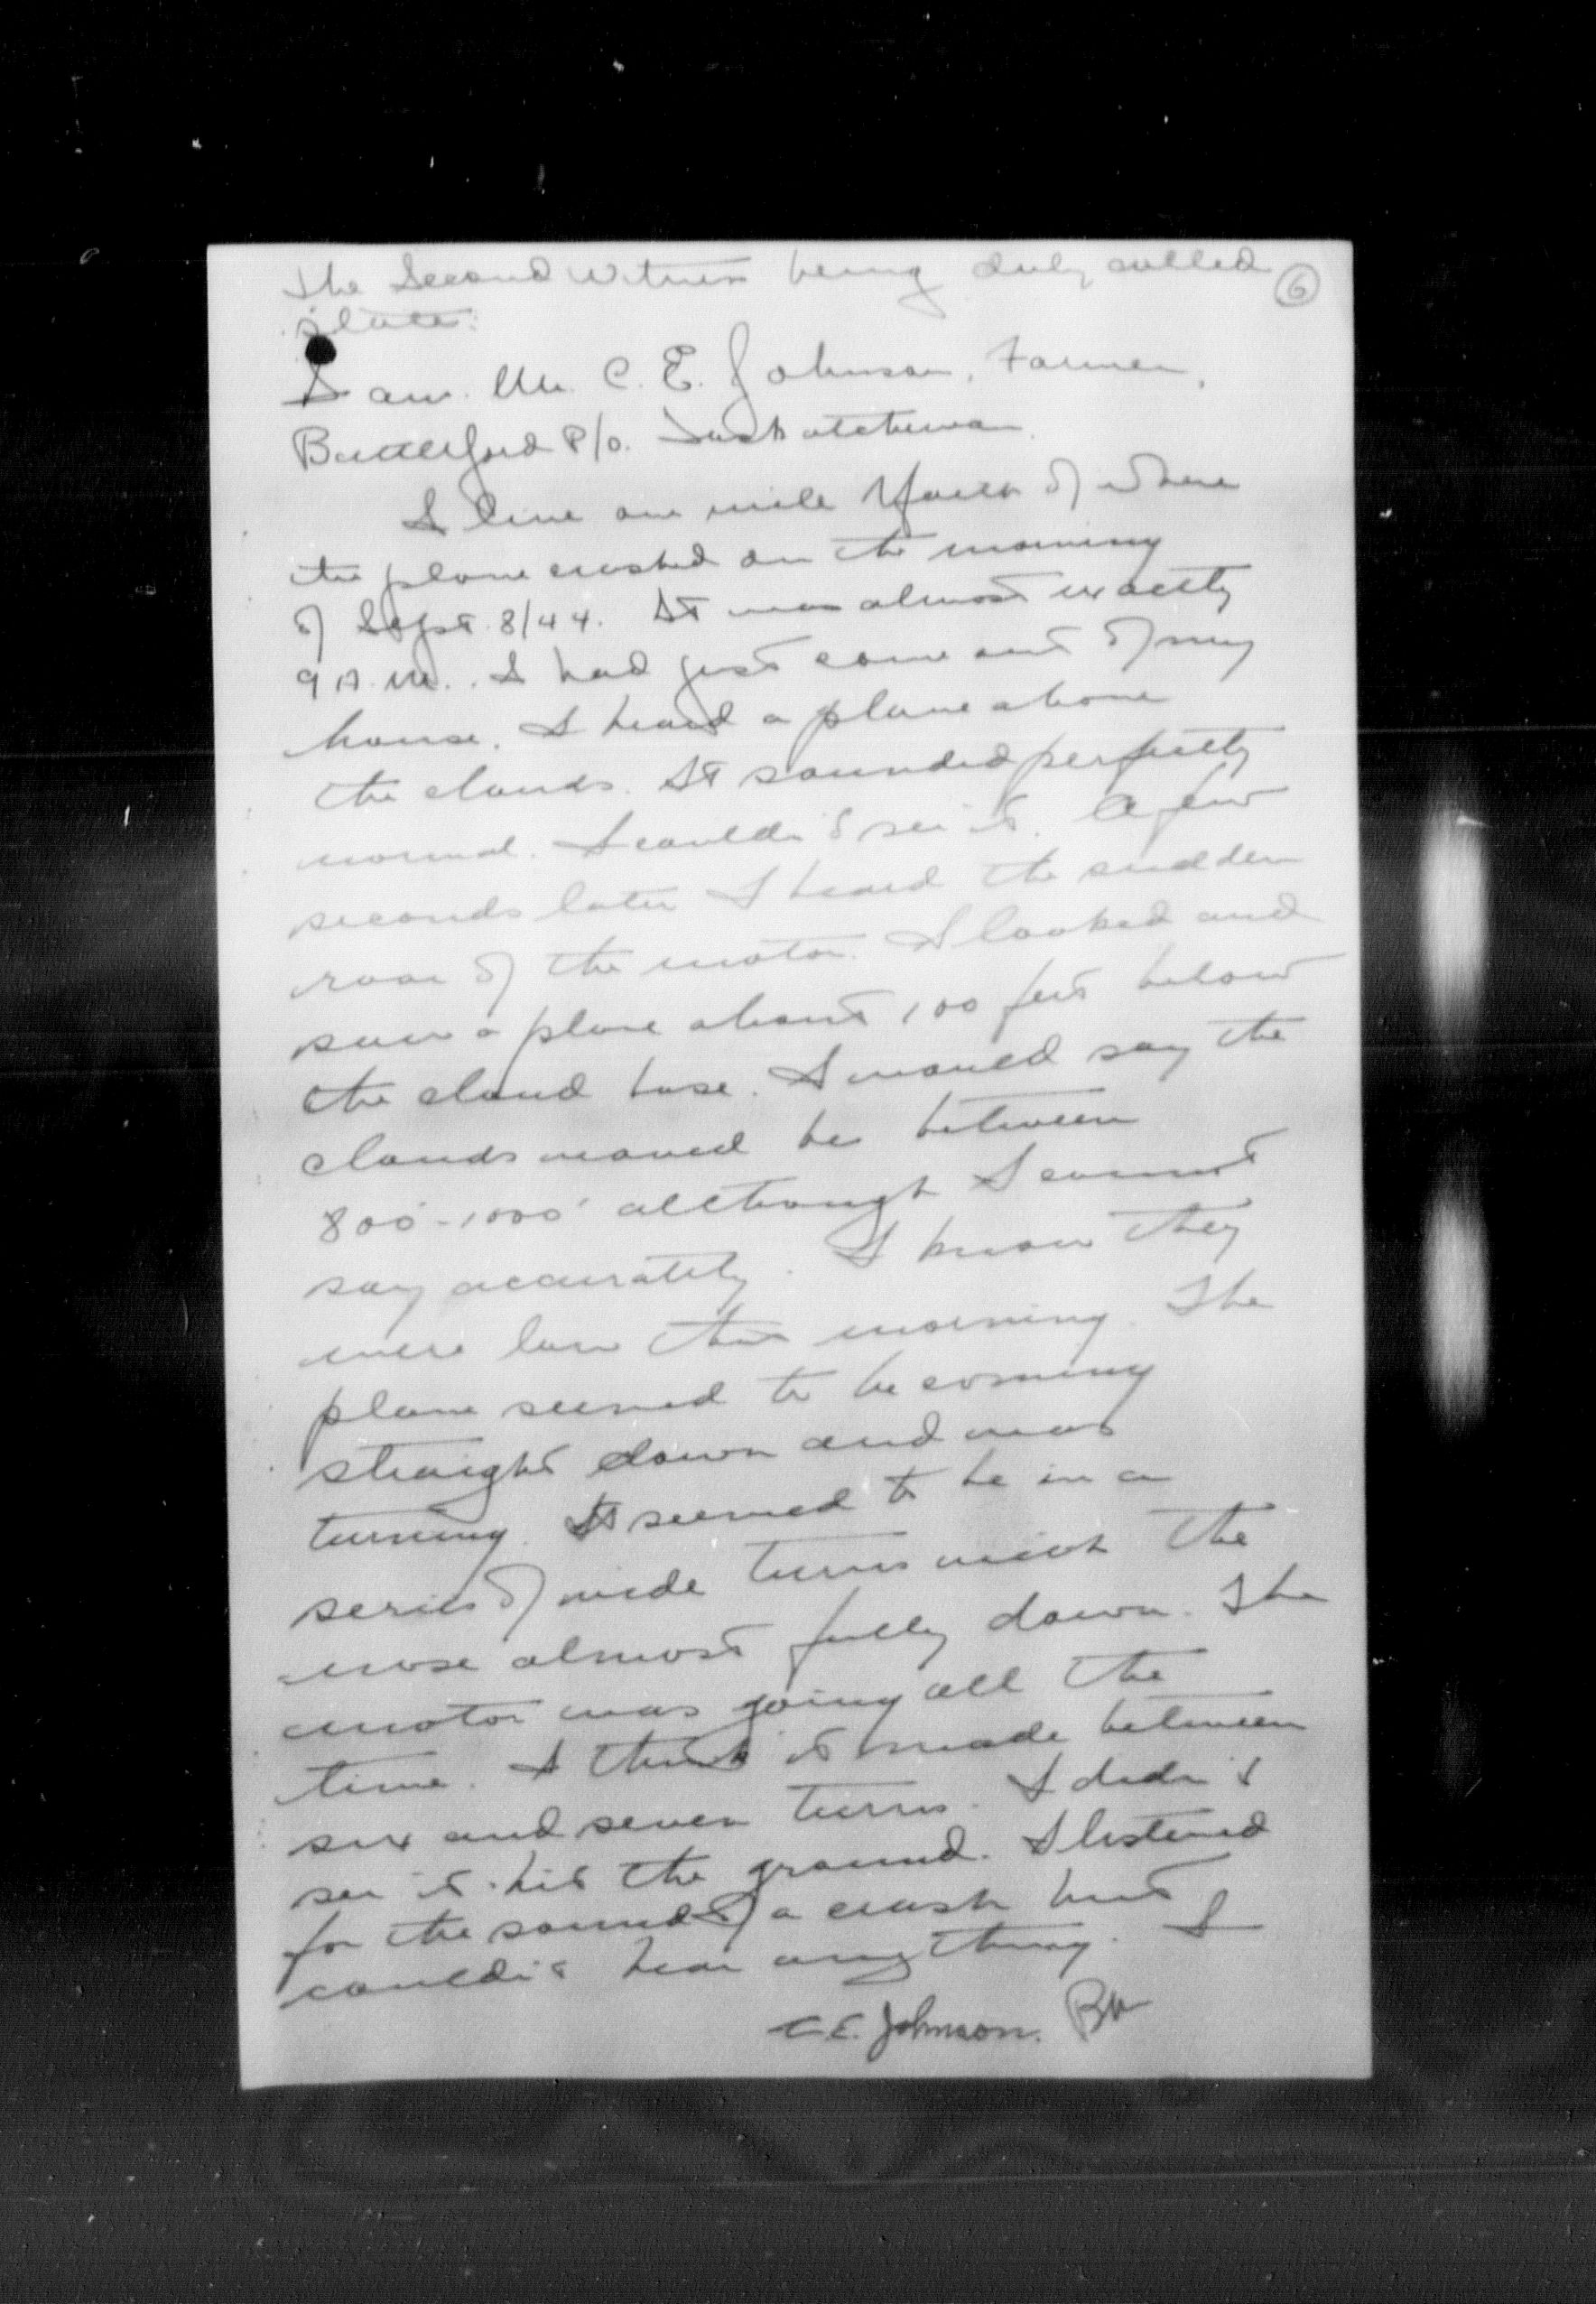 The Second Witness being duly called
6
states:
I am Mr. C. E. Johnson, Farmer,
P/o. Saskatchewan.
I live one mile North of where
the plane crashed on the morning
of Sept. 8/44. It was almost exactly
9 A.M. I had just come out of my
house. I heard a plane above
the clouds. It sounded perfectly
normal. I couldn't see it. A few
seconds later I heard the sudden
roar of the motor. I looked and
saw a plane about 100 feet below
the cloud base. I would say the
clouds would be between
800'-1000' although I cannot
say accurately. I know they
were low this morning. The
plane seemed to be coming
straight down and was
turning. It seemed to be in a
series of wide turns with the
nose almost fully down. The
motor was going all the
time. I think it made between
six and seven turns. I didn't
see it hit the ground. I listened
for the sound of a crash but
couldn't hear anything. I
C.E. Johnson.